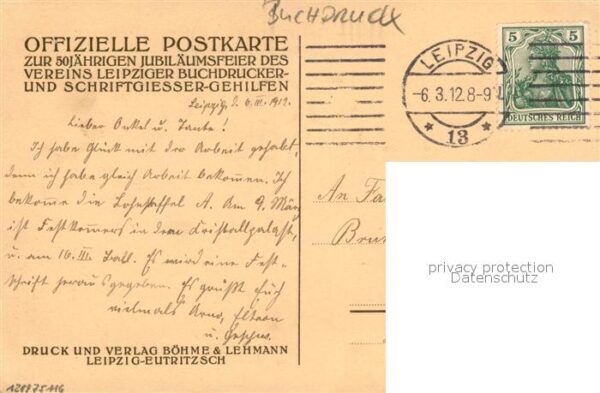 Buchdruck
OFFIZIELLE POSTKARTE
ZUR 50JÄHRIGEN JUBILÄUMSFEIER DES
VEREINS LEIPZIGER BUCHDRUCKER-
UND SCHRIFTGIESSER-GEHILFEN
Leipzig, d. 6.III.1912.
Lieber Onkel u. Tante!
Ich habe Glück mit der Arbeit gehabt,
denn ich habe gleich Arbeit bekommen. Ich
bekomme die Lohnstaffel A. Am 9. März
ist Festkommers in dem Kristallpalast,
u. am 16.III. Ball. Es wird eine Fest-
schrift herausgegeben. Es grüßt Euch
vielmals Arno, Eltern
u. Geschw.
DRUCK UND VERLAG BÖHME & LEHMANN
LEIPZIG-EUTRITZSCH
LEIPZIG
-6.3.12.8-9
* 13 *
5 5
DEUTSCHES REICH
An Fa
privacy protection
Datenschutz